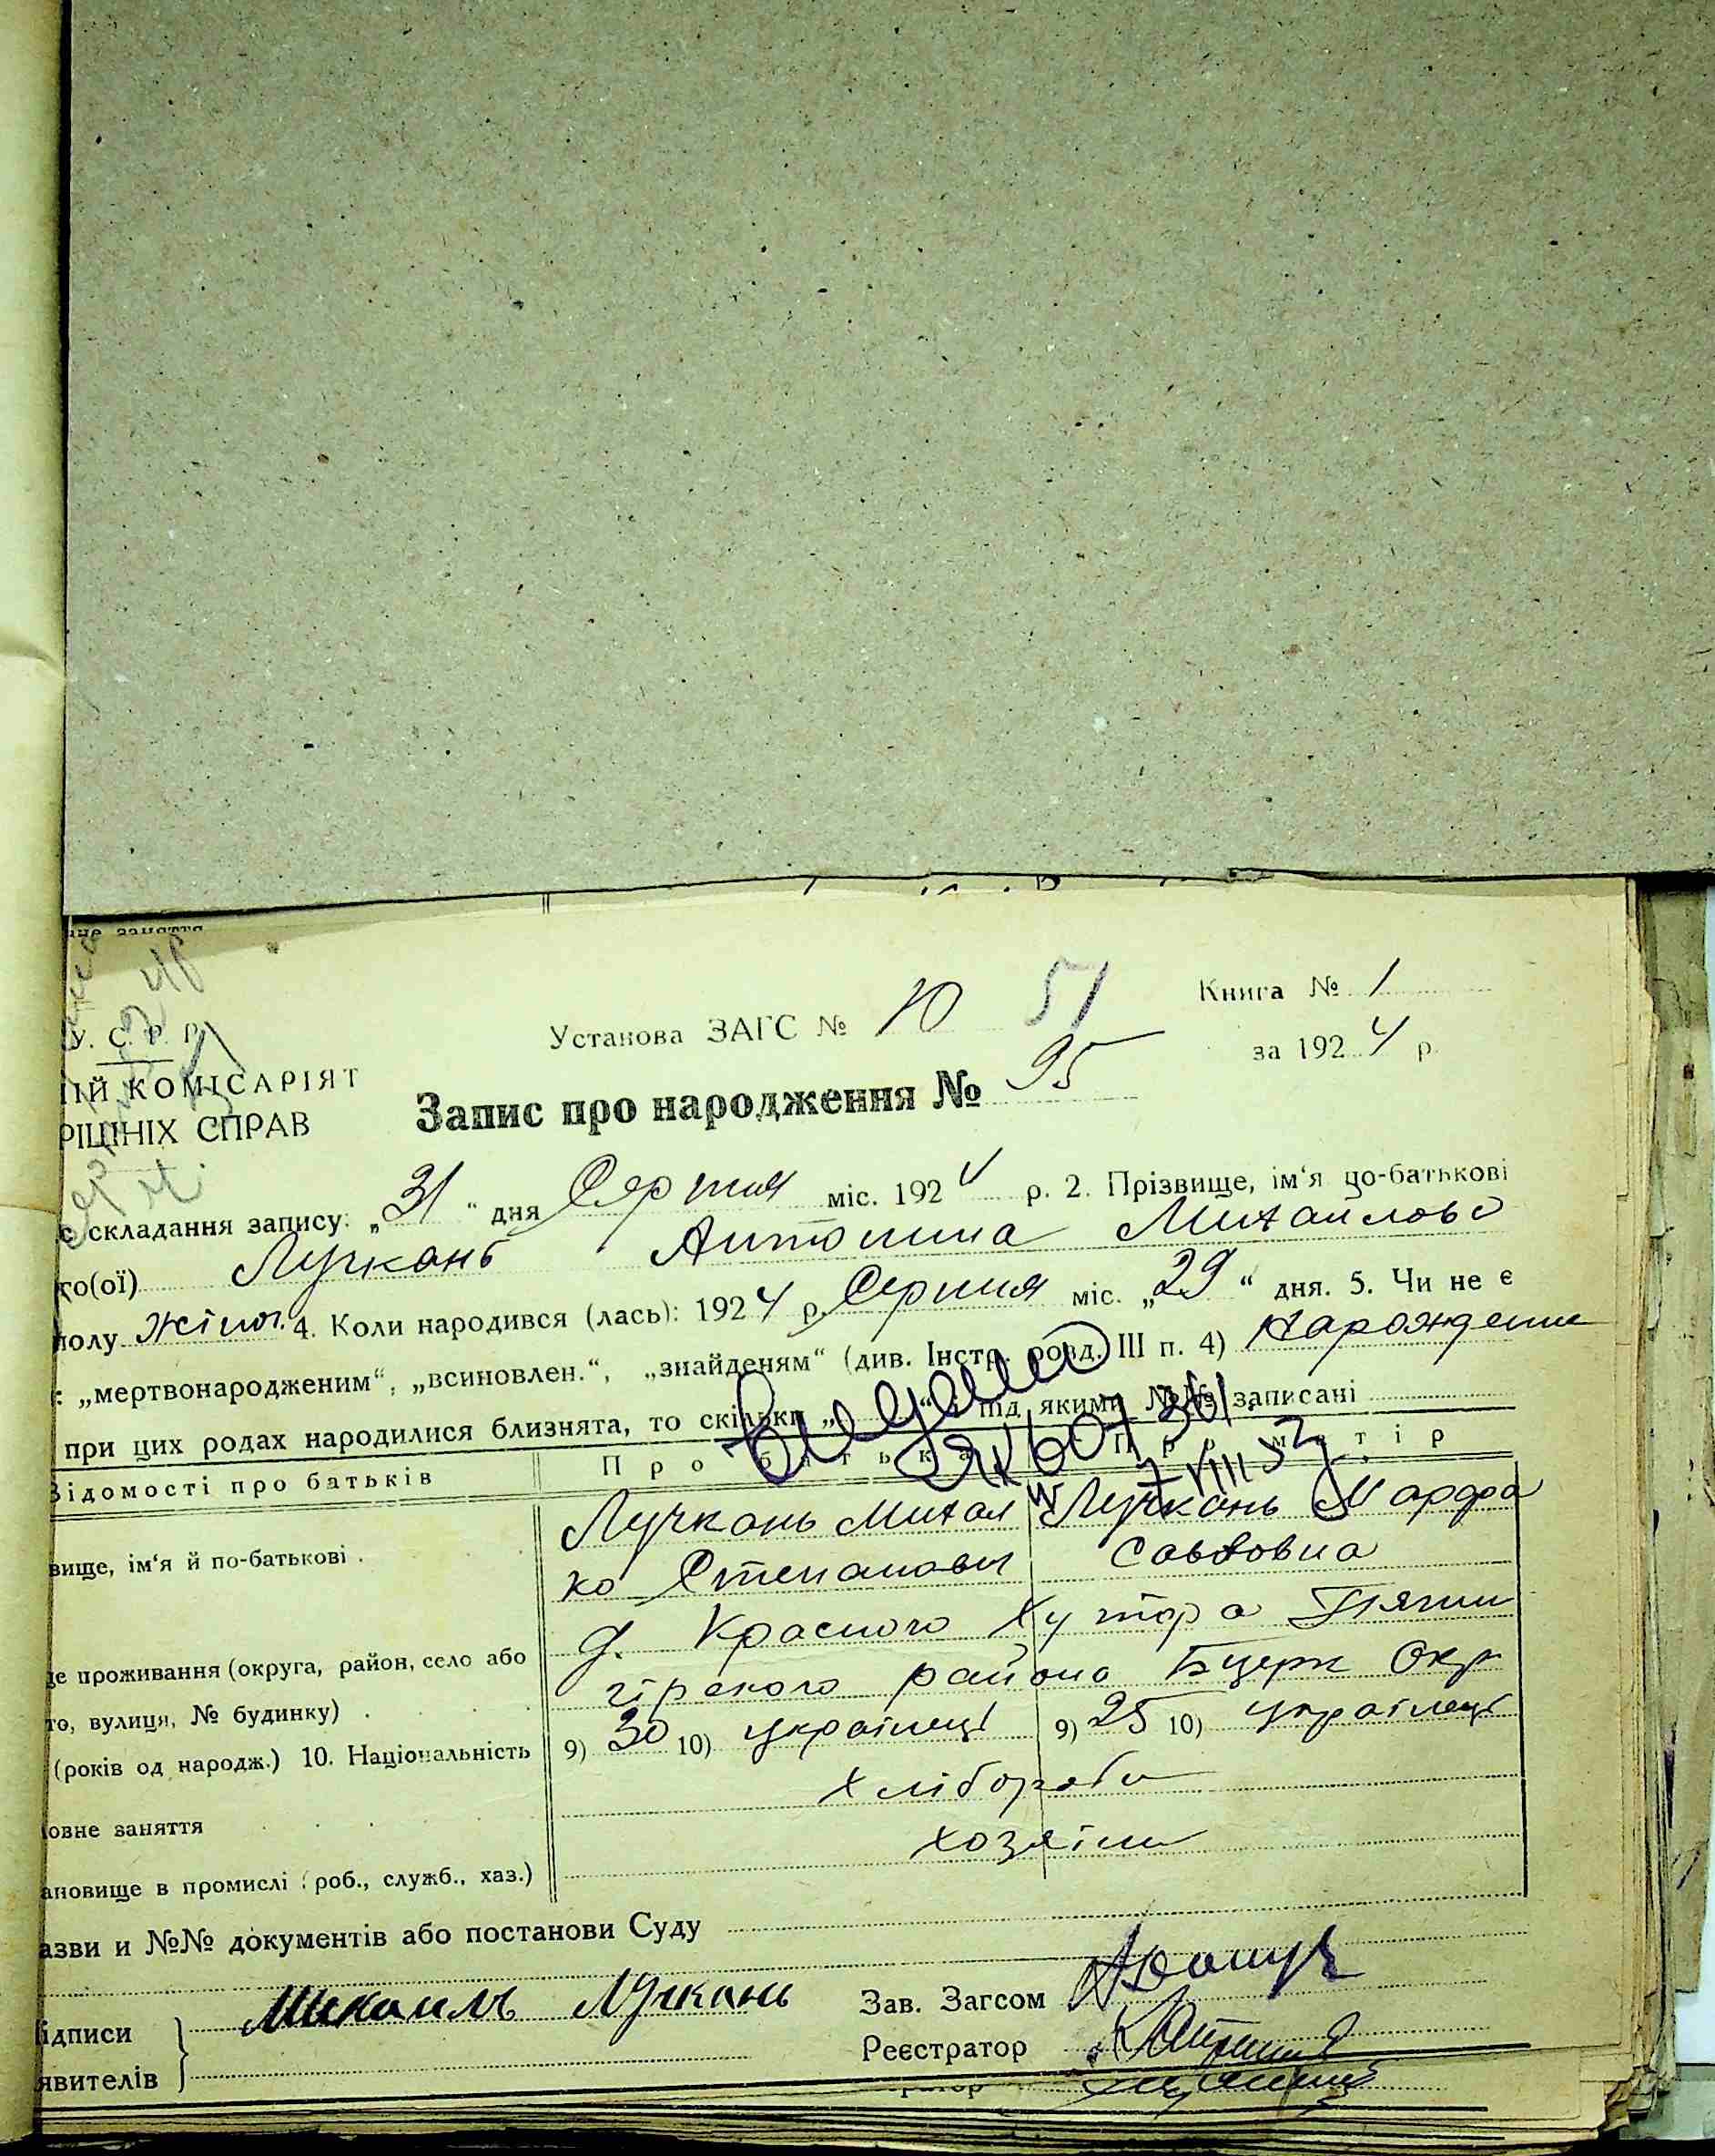 У. С. Р. Р.
ІЙ КОМІСАРІЯТ
РІШНІХ СПРАВ
Установа ЗАГС № 10 51
Книга № 1
за 1924 р.
Запис про народження № 95
с складання запису: „31“ дня Серпня міс. 1924 р. 2. Прізвище, ім‘я по-батькові
го(ої) Лучкань Антонина Михайлово
полу жіноч. 4. Коли народився (лась): 1924 р. Серпня міс. „29“ дня. 5. Чи не є
: „мертвонародженим“, „всиновлен.“, „знайденям“ (див. Інстр. розд. III п. 4) Нарождение
при цих родах народилися близнята, то скільки „ “ і під якими №№ записані
Відомості про батьків Про батька Про матір
вище, ім‘я й по-батькові . Лучкань Михал Лучкань Марфа
ко Степанович Саввовна
це проживання (округа, район, село або д. Красного Хутора Пяти
то, вулиця, № будинку) . гірского району Бцерк Окр
(років од народж.) 10. Національність 9) 30 10) українці 9) 25 10) українці
овне заняття хлібороби
ановище в промислі (роб., служб., хаз.) хозяїни
азви и №№ документів або постанови Суду
ідписи Михаилъ Лучкань Зав. Загсом
явителів Реєстратор